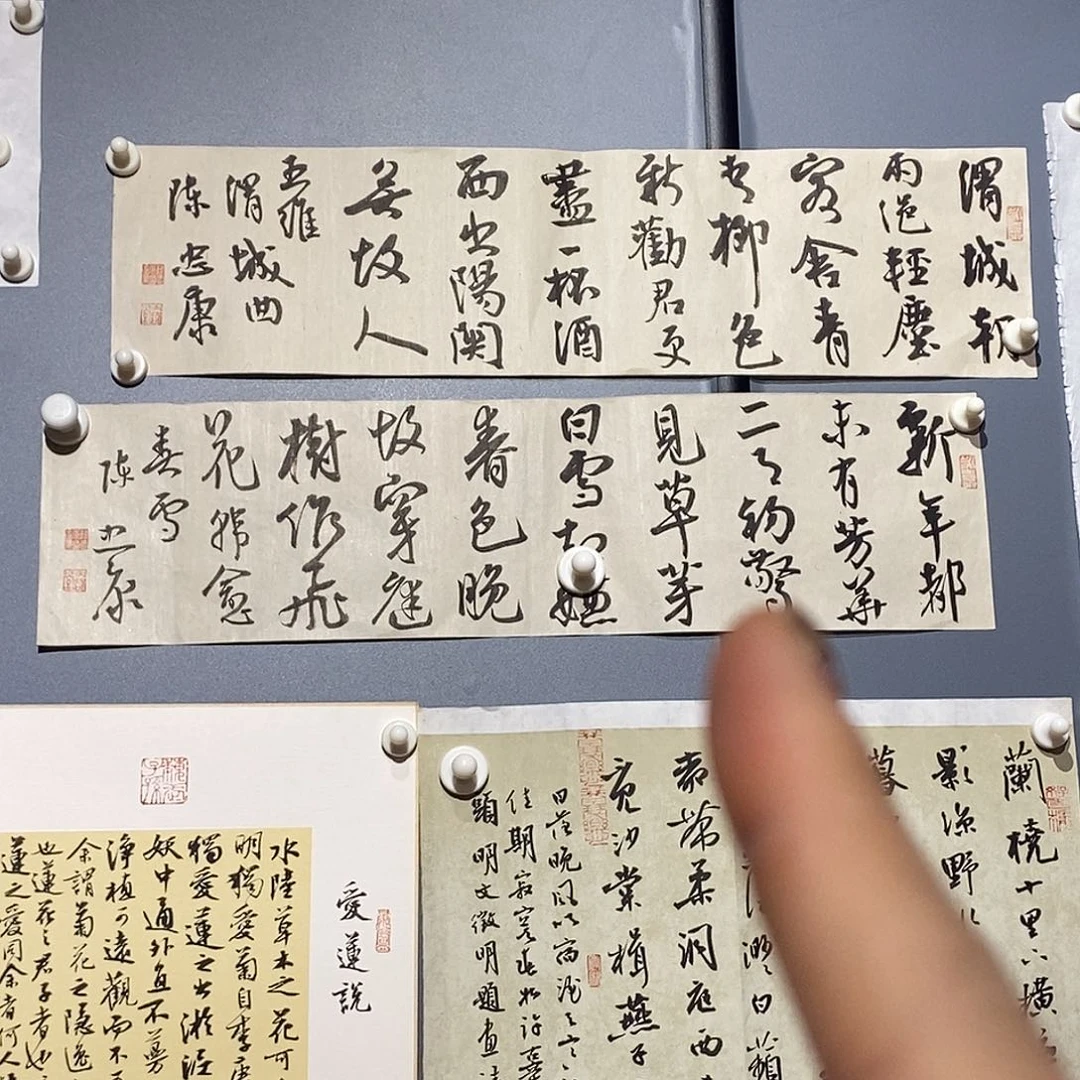 渭城朝
雨浥輕塵
客舍青
青柳色
新勸君更
盡一杯酒
西出陽関
無故人
王維
渭城曲
陈忠康
新年都
未有芳華
二月初驚
見草芽
白雪却嫌
春色晚
故穿庭
樹作飛
花韓愈
春雪
陈忠康
蘭橈十里
影漾野
暮
日蘋
柔洞庭西
沙棠楫燕子
日落晚風
佳期寂寞春如許
題明文徵明題畫詩
愛蓮説
水陸草木之花可
明獨愛菊自李唐
獨愛蓮之出淤泥
妖中通外直不蔓
淨植可遠觀而不
余謂菊花之隱逸
也蓮花之君子者也
蓮之愛同余者何人